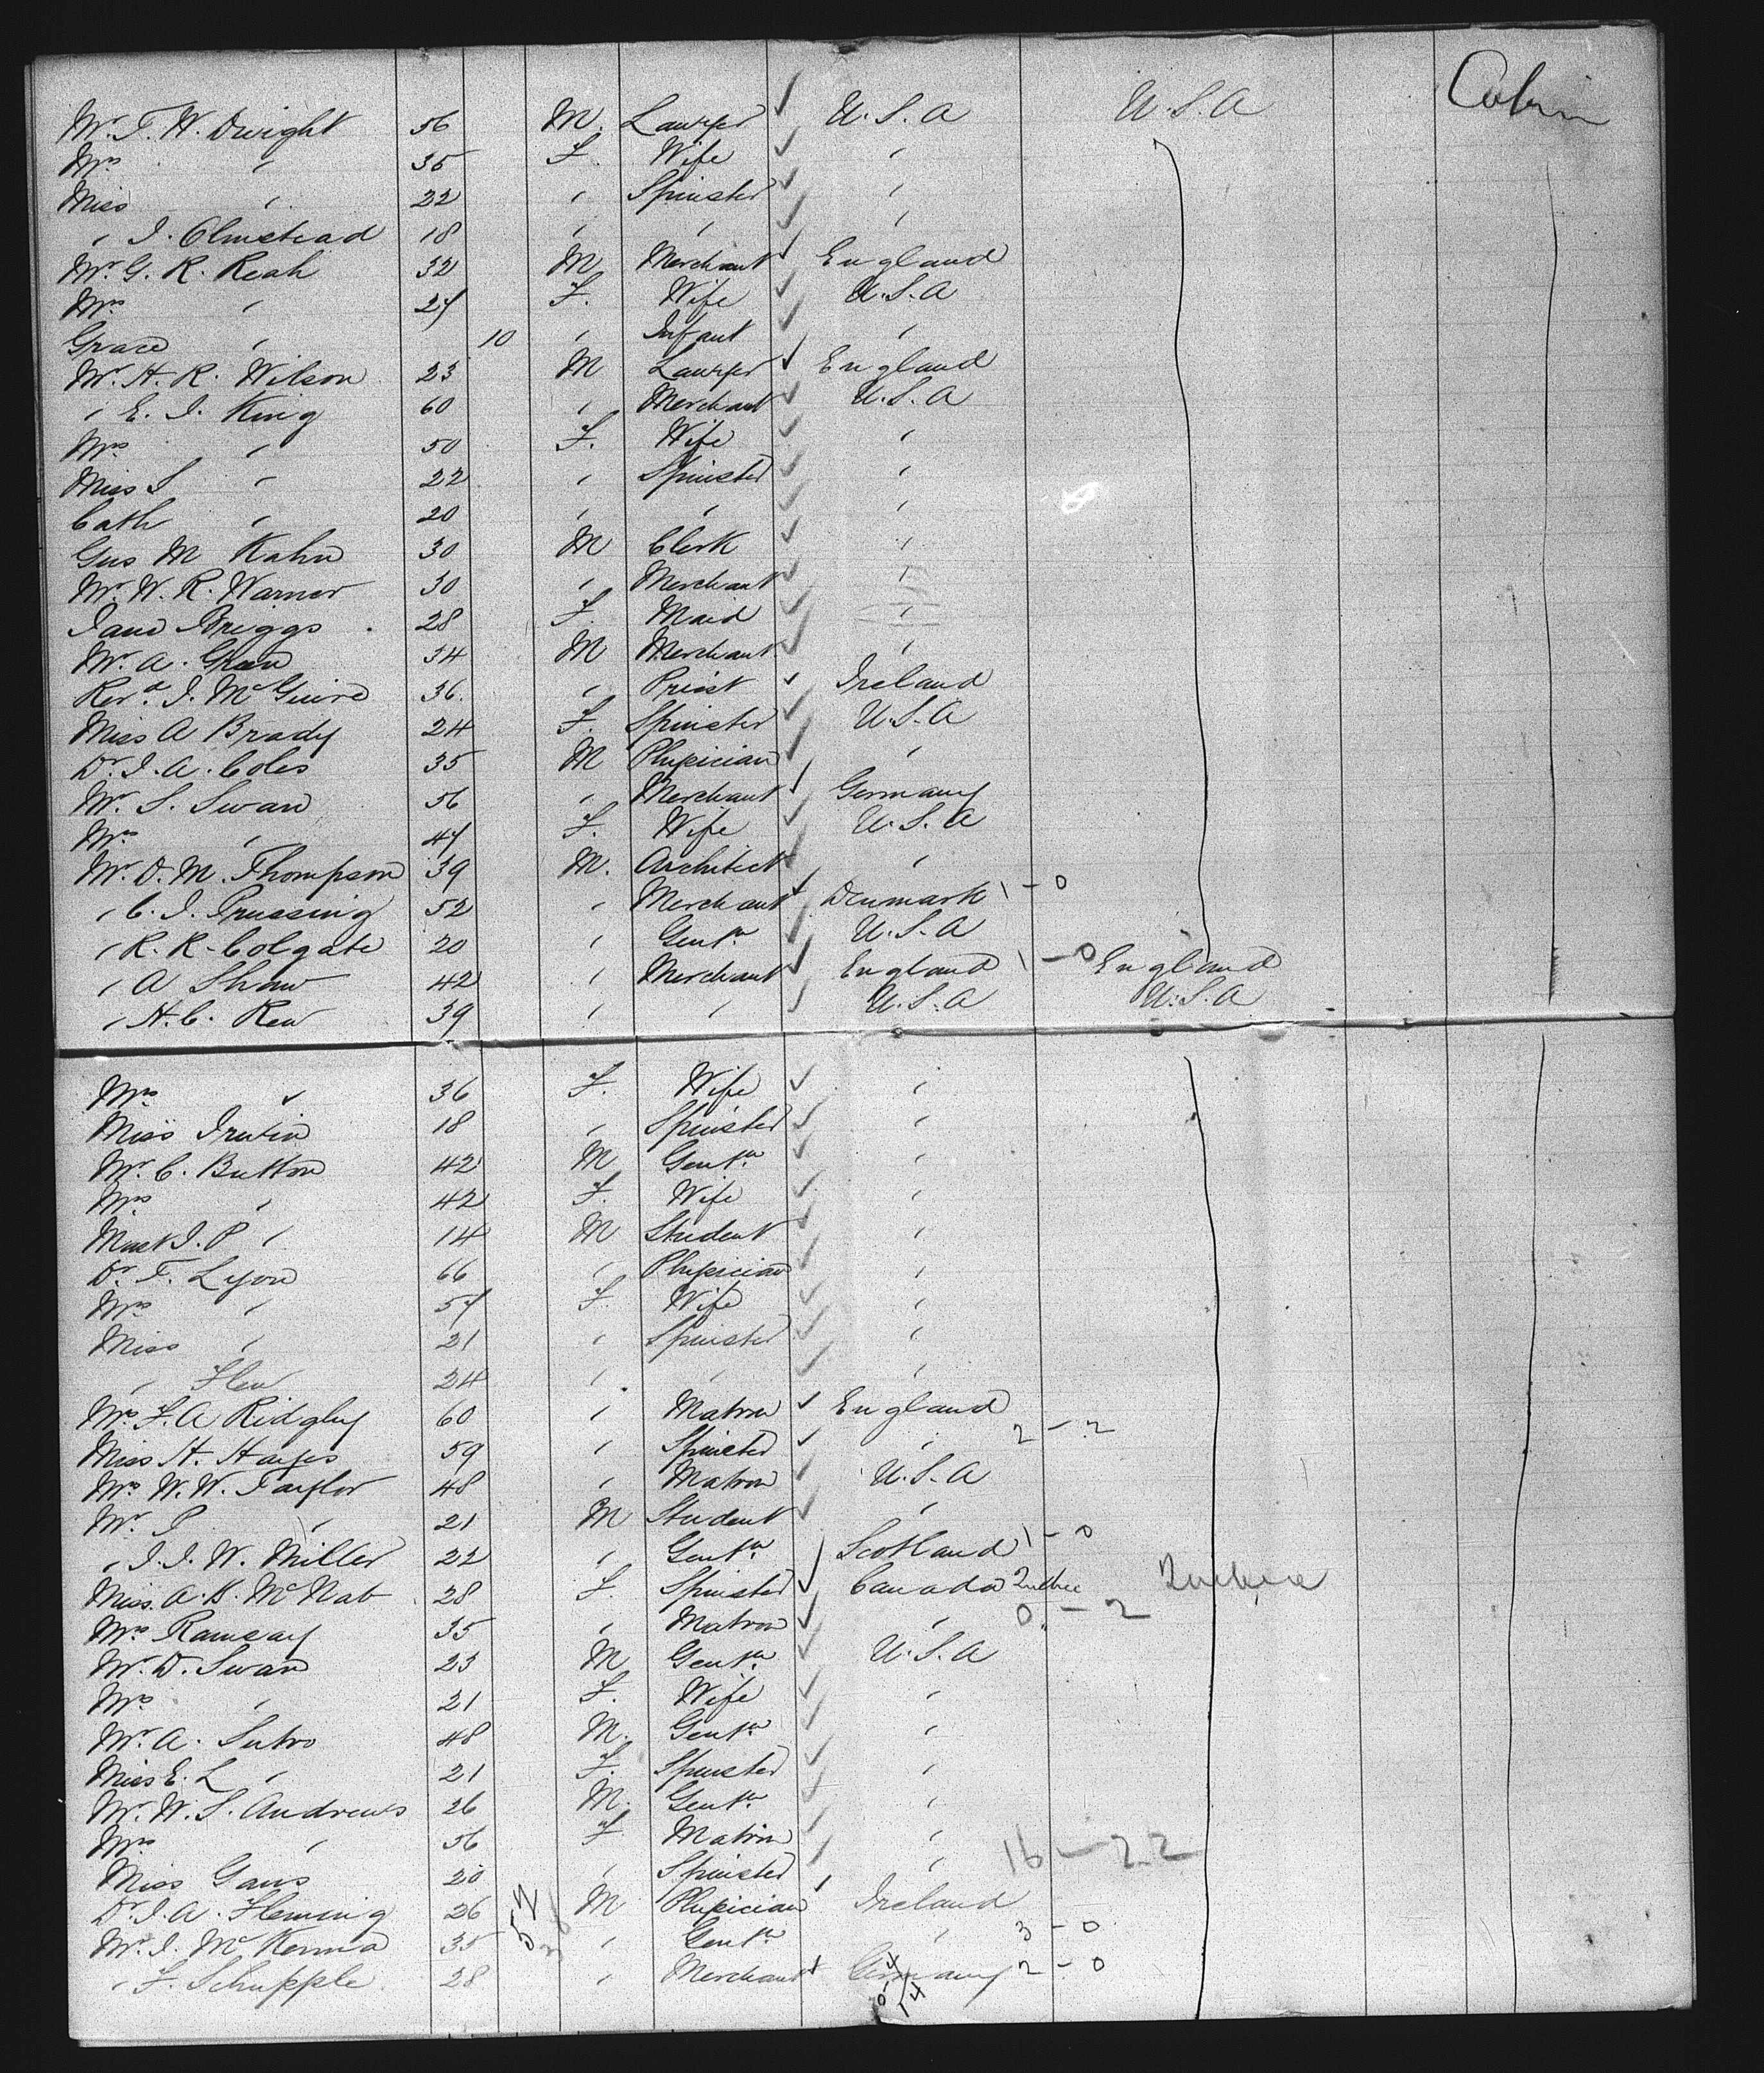 Mr. T. W. Dwight 56 M. Lawyer U.S.A U.S.A Cabin
Mrs " 35 F. Wife "
Miss " 22 " Spinster "
" J. Olmstead 18 " " "
Mr. G. R. Reah 32 M Merchant England
Mrs " 27 F. Wife U.S.A
Grace " 10 " Infant "
Mr. H. R. Wilson 23 M Lawyer England
" E. J. King 60 " Merchant U.S.A
Mrs " 50 F. Wife "
Miss S " 22 " Spinster "
Cath " 20 " " "
Gus M Kahn 30 M Clerk "
Mr. W. R. Warner 30 " Merchant "
Jane Briggs 28 F. Maid "
Mr. A. Green 34 M Merchant "
Revd. J. McGuire 36. " Priest Ireland
Miss A Brady 24 F. Spinster U.S.A
Dr. J. A. Coles 35 M Physician "
Mr. S. Swan 56 " Merchant Germany
Mrs " 47 F. Wife U.S.A
Mr. D. M. Thompson 39 M. Architect "
" C. J. Prussing 52 " Merchant Denmark 1 - 0
" R. R. Colgate 20 " Gentn. U.S.A
" A Shaw 42 " Merchant England 1 - 0 England
" H. C. Rew 39 " " U.S.A U.S.A
Mrs " 36 F. Wife "
Miss Irwin 18 " Spinster "
Mr. C. Button 42 M Gentn. "
Mrs " 42 F. Wife "
Mast J. P " 14 M Student "
Dr. F. Lyon 66 " Physician "
Mrs " 57 F Wife "
Miss " 21 " Spinster "
" 24 " " "
Mrs F. A Ridgley 60 " Matron England
Miss H. Hayes 59 " Spinster " 2 - 2
Mrs W. W. Taylor 48 " Matron U.S.A
Mr. P " 21 M Student "
" J. J. W. Miller 22 " Gentn. Scotland 1 - 0
Miss. A. K. McNab 28 F. Spinster Canada Quebec Quebec
Mrs Ramsay 35 " Matron " 0 - 2
Mr. D. Swan 23 M Gentn. U.S.A
Mrs " 21 F. Wife "
Mr. A. Sutro 48 M. Gentn. "
Miss E. L " 21 F. Spinster "
Mr. W. S. Andrews 26 M. Gentn. "
Mrs " 56 F Matron "
Miss Gans 20 " Spinster " 16 - 22
Dr. J. A. Fleming 26 M Physician Ireland
Mr. J. McKenna 35 " Gentn. " 3 - 0
" F. Schupple 28 " Merchant Germany 2 - 0